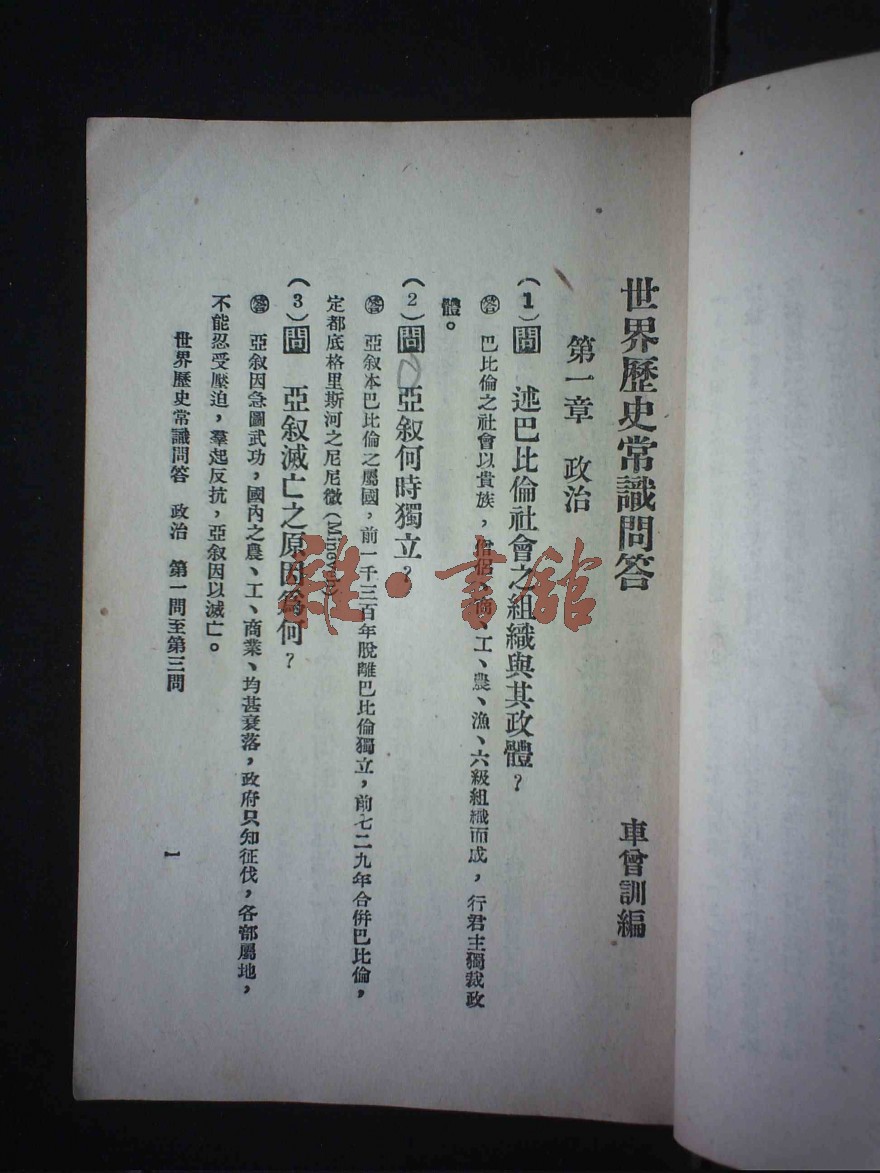 世界歷史常識問答
車曾訓編
第一章 政治
(1)問 述巴比倫社會之組織與其政體？
答 巴比倫之社會以貴族，僧侶、商、工、農、漁、六級組織而成，行君主獨裁政
體。
(2)問 亞叙何時獨立？
答 亞叙本巴比倫之屬國，前一千三百年脫離巴比倫獨立，前七二九年合併巴比倫，
定都底格里斯河之尼尼微(
(3)問 亞叙滅亡之原因爲何？
答 亞叙因急圖武功，國內之農、工、商業、均甚衰落，政府只知征伐，各部屬地，
不能忍受壓迫，羣起反抗，亞叙因以滅亡。
世界歷史常識問答 政治 第一問至第三問
1
雜·書館